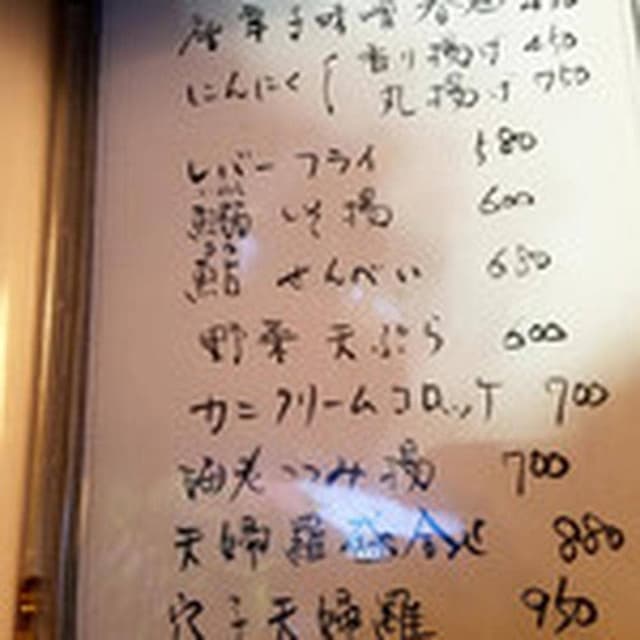 にんにく 香り揚げ 450
丸揚げ 750
レバーフライ 580
いそ揚 600
せんべい 650
野菜天ぷら 600
カニクリームコロッケ 700
海老つつみ揚 700
天婦羅盛合せ 880
穴子天婦羅 950